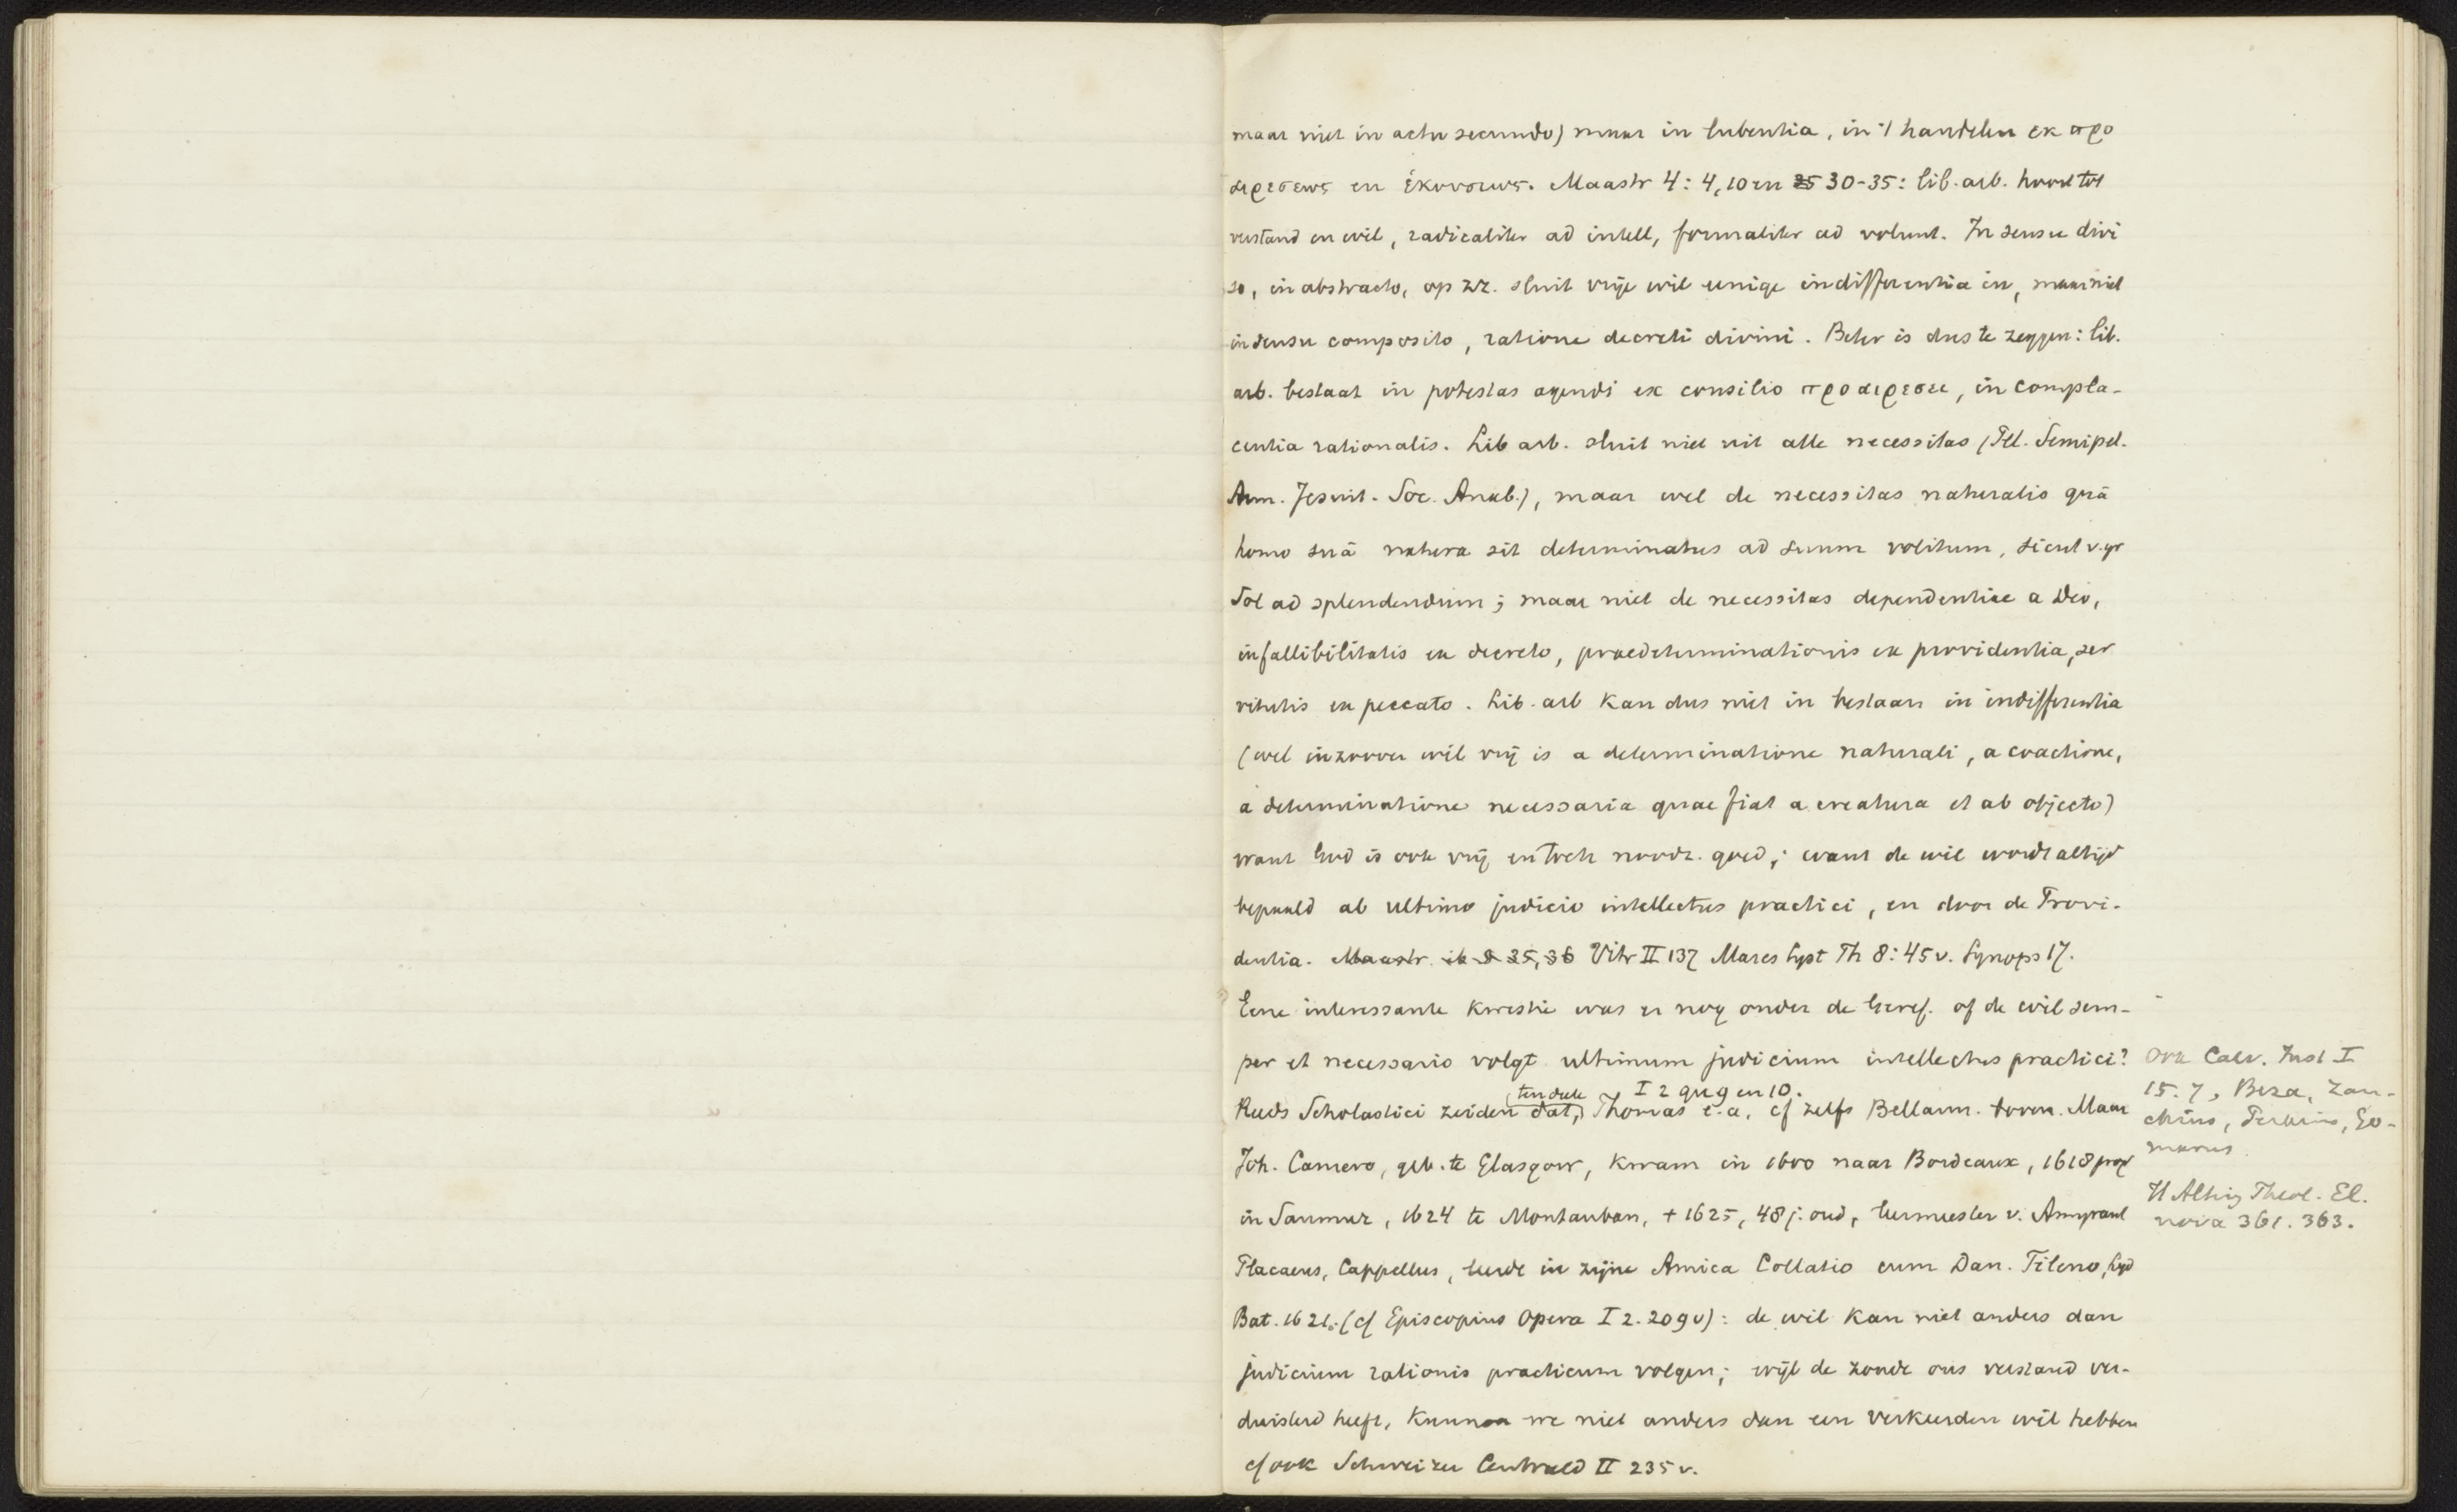 maar niet in actu secundo) maar in lubentia, in 't handelen εκ προ
αιρεσεως en ἑκουσιως. Maastr 4: 4, 10 en 25 30-35: lib. arb. hoort tot
verstand en wil, radicaliter ad intell, formaliter ad volunt. In sensu divi
so, in abstracto, op zz. sluit vrije wil eenige indifferentia in, maar niet
in sensu composito, ratione decreti divini. Beter is dus te zeggen: lib.
arb. bestaat in potestas agendi ex consilio προαιρεσει, in compla-
centia rationalis. Lib arb. sluit niet uit alle necessitas (Pel. Semipel.
Arm. Jesuit. Soc. Anab.), maar wel de necessitas naturalis quâ
homo suâ natura sit determinatus ad suum volitum, sicut v. gr
Sol ad splendendum; maar niet de necessitas dependentiae a Deo,
infallibilitatis ex decreto, praedeterminationis ex providentia, ser
vitutis ex peccato. Lib. arb kan dus niet in bestaan in indifferentia
(wel inzoover wil vrij is a determinatione naturali, a coactione,
a determinatione necessaria quae fiat a creatura et ab objecto)
want God is ook vrij en toch noodz. goed; want de wil wordt altijd
bepaald ab ultimo judicio intellectus practici, en door de Provi-
dentia. Maastr. ib 8 35, 36 Vitr II 137 Mares Syst Th 8: 45 v. Synops 17.
Eene interessante kwestie was er nog onder de Geref. of de wil sem-
per et necessario volgt ultimum judicium intellectus practici?
Reeds Scholastici zeiden dat, (ten deele) Thomas I 2 qu 9 en 10. e.a, cf zelfs Bellarm. boven. Maar
Joh. Camero, geb. te Glasgow, kwam in 1600 naar Bordeaux, 1618 prof
in Saumur, 1624 te Montauban, † 1625, 48 j. oud, leermeester v. Amyraut
Placaeus, Cappellus, leerde in zijne Amica Collatio cum Dan. Tileno, Lugd
Bat. 1621. (cf Episcopius Opera I 2. 209 v): de wil kan niet anders dan
judicium rationis practicum volgen; wijl de zonde ons verstand ver-
duisterd heeft, kunnen we niet anders dan een verkeerden wil hebben
cf ook Schweizer Centrald II 235 v.
Ook Calv. Inst I
15. 7, Beza, Zan-
chius, Perkins, Go-
marus
H Alting Theol. El.
nova 361. 363.